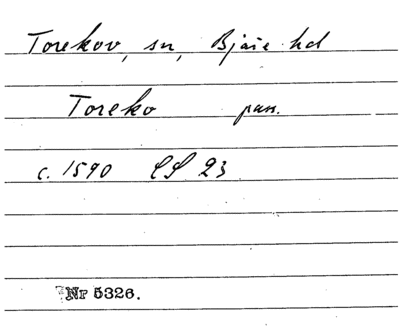 Torekov, sn, Bjäre hd
Toreko pass.
c. 1590 LS 23
Nr 5326.